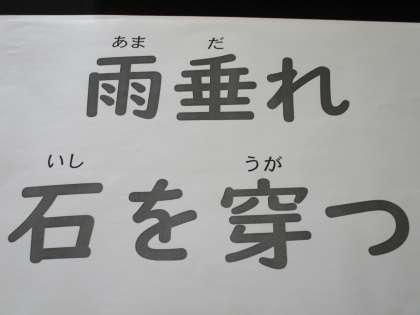 あま だ
雨垂れ
いし うが
石を穿つ